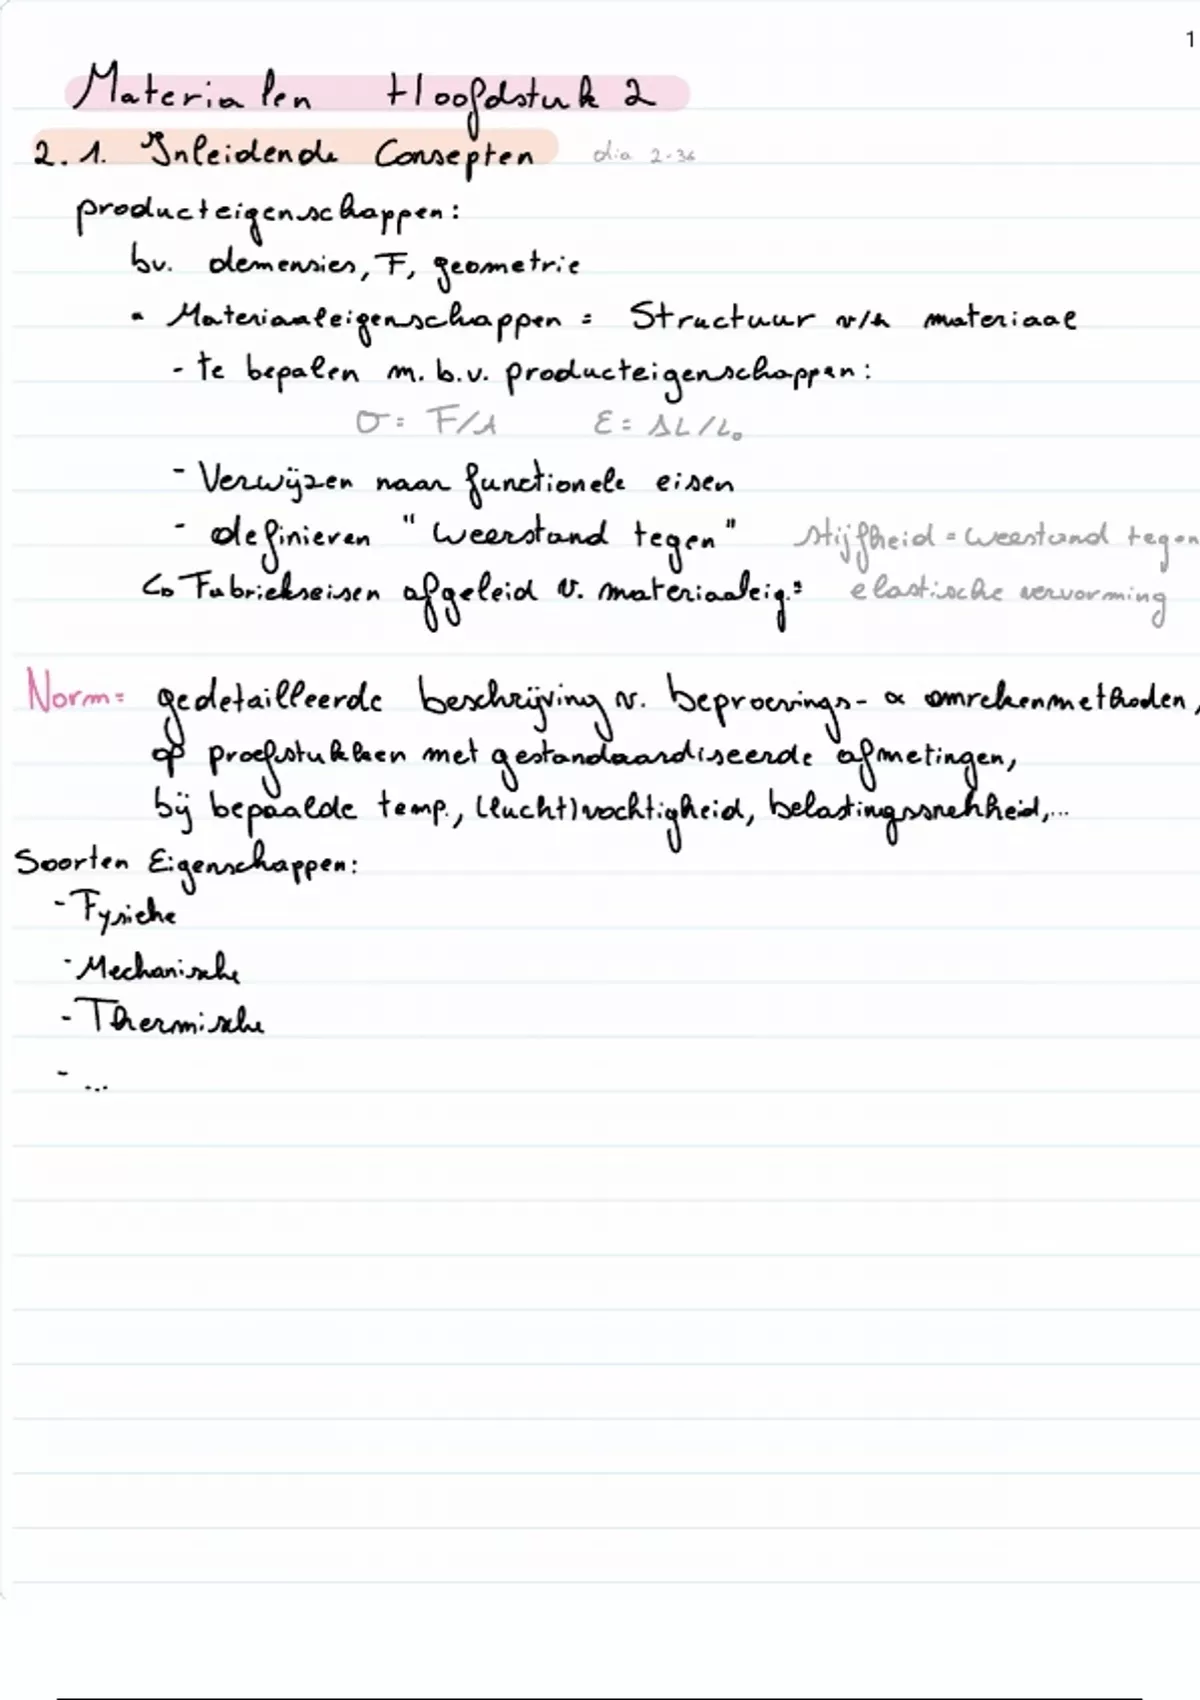 1
Materialen Hoofdstuk 2
2.1. Inleidende Consepten dia 2-36
producteigenschappen:
bv. demensies, F, geometrie
• Materiaaleigenschappen = Structuur v/h materiaal
- te bepalen m.b.v. producteigenschappen:
σ = F/A ε = ΔL/L₀
- Verwijzen naar functionele eisen
- definieren "weerstand tegen" stijfheid = weerstand tegen
↳ Fabriekseisen afgeleid v. materiaaleig.: elastische vervorming
Norm= gedetailleerde beschrijving v. beproevings- & omrekenmethoden,
op proefstukken met gestandaardiseerde afmetingen,
bij bepaalde temp., (lucht)vochtigheid, belastingssnelheid,...
Soorten Eigenschappen:
- Fysiche
- Mechanische
- Thermische
- ...